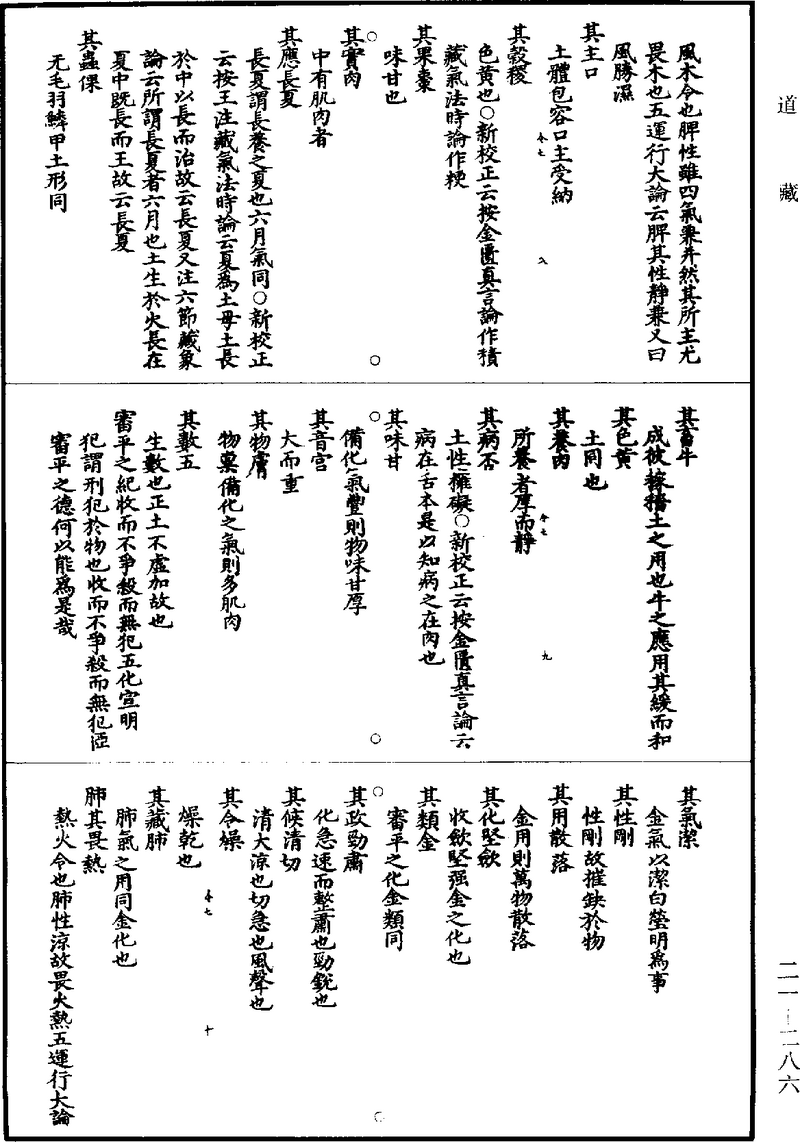 道藏
風木令也脾性雖四氣兼并然其所主尤
畏木也五運行大論云脾其性靜兼又曰
風勝濕
其主口
土體包容口主受納
其穀稷
色黃也○新校正云按金匱真言論作稷
藏氣法時論作粳
其果棗
味甘也
其實肉
中有肌肉者
其應長夏
長夏謂長養之夏也六月氣同○新校正
云按王注藏氣法時論云夏爲土母土長
於中以長而治故云長夏又注六節藏象
論云所謂長夏者六月也土生於火長在
夏中既長而王故云長夏
其蟲倮
无毛羽鱗甲土形同
其畜牛
成彼稼穡土之用也牛之應用其緩而和
其色黃
土同也
其養肉
所養者厚而靜
其病否
土性擁礙○新校正云按金匱真言論云
病在舌本是以知病之在肉也
其味甘
備化氣豐則物味甘厚
其音宮
大而重
其物膚
物稟備化之氣則多肌肉
其數五
生數也正土不虛加故也
審平之紀收而不爭殺而無犯五化宣明
犯謂刑犯於物也收而不爭殺而無犯匪
審平之德何以能爲是哉
其氣潔
金氣以潔白瑩明爲事
其性剛
性剛故摧缺於物
其用散落
金用則萬物散落
其化堅斂
收斂堅强金之化也
其類金
審平之化金類同
其政勁肅
化急速而整肅也勁銳也
其候清切
清大涼也切急也風聲也
其令燥
燥乾也
其藏肺
肺氣之用同金化也
肺其畏熱
熱火令也肺性涼故畏火熱五運行大論
二一—二八六